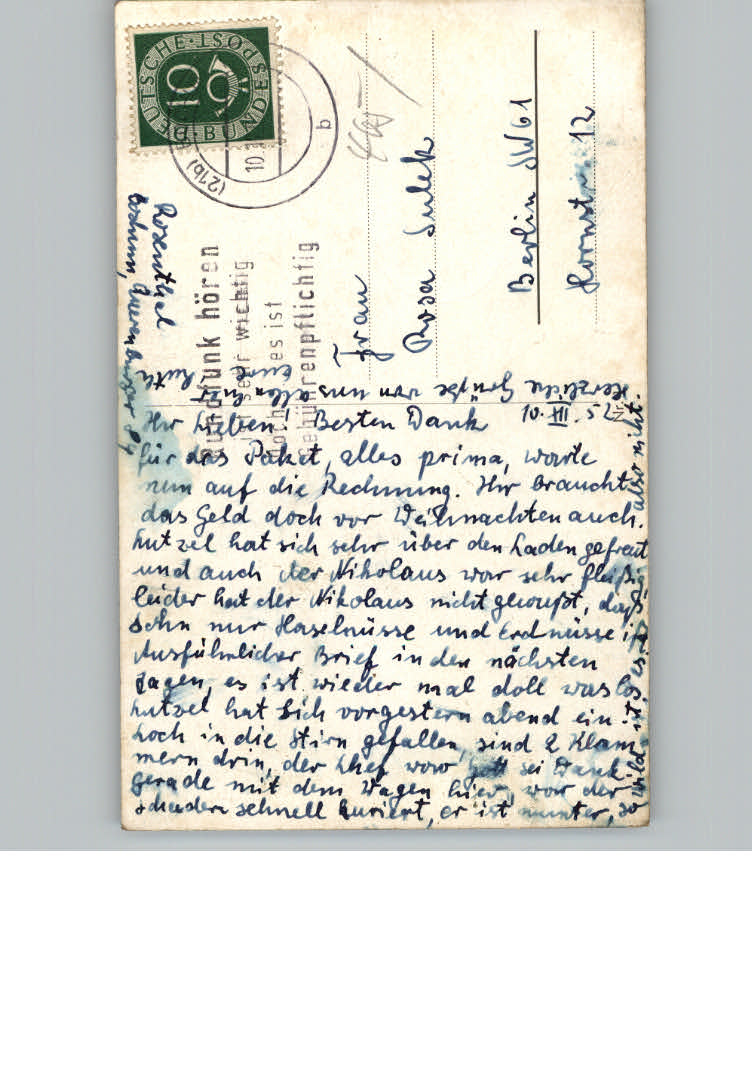 DEUTSCHE·BUNDESPOST
10
(21b)
10.
b
Rundfunk hören
ist sehr wichtig
doch es ist
gebührenpflichtig
Frau
Rosa Sulek
Berlin SW61
Hornstr. 12
Rosenthal
Bochum,
10. XII. 52
Ihr Lieben! Besten Dank
für das Paket, alles prima, warte
nun auf die Rechnung. Ihr braucht
das Geld doch vor Weihnachten auch.
Hutzel hat sich sehr über den Laden gefreut
und auch der Nikolaus war sehr fleißig,
leider hat der Nikolaus nicht gewußt, daß
Sohn nur Haselnüsse und Erdnüsse ißt
Ausführlicher Brief in den nächsten
Tagen, es ist wieder mal doll was los
Hutzel hat sich vorgestern abend ein
Loch in die Stirn gefallen, sind 2 Klam-
mern drin, der Chef war Gott sei Dank
gerade mit dem Wagen hier, war der
Schaden schnell kuriert, er ist munter, so
wild ist es also nicht.
Herzliche Grüße von uns allen
Eure Ruth